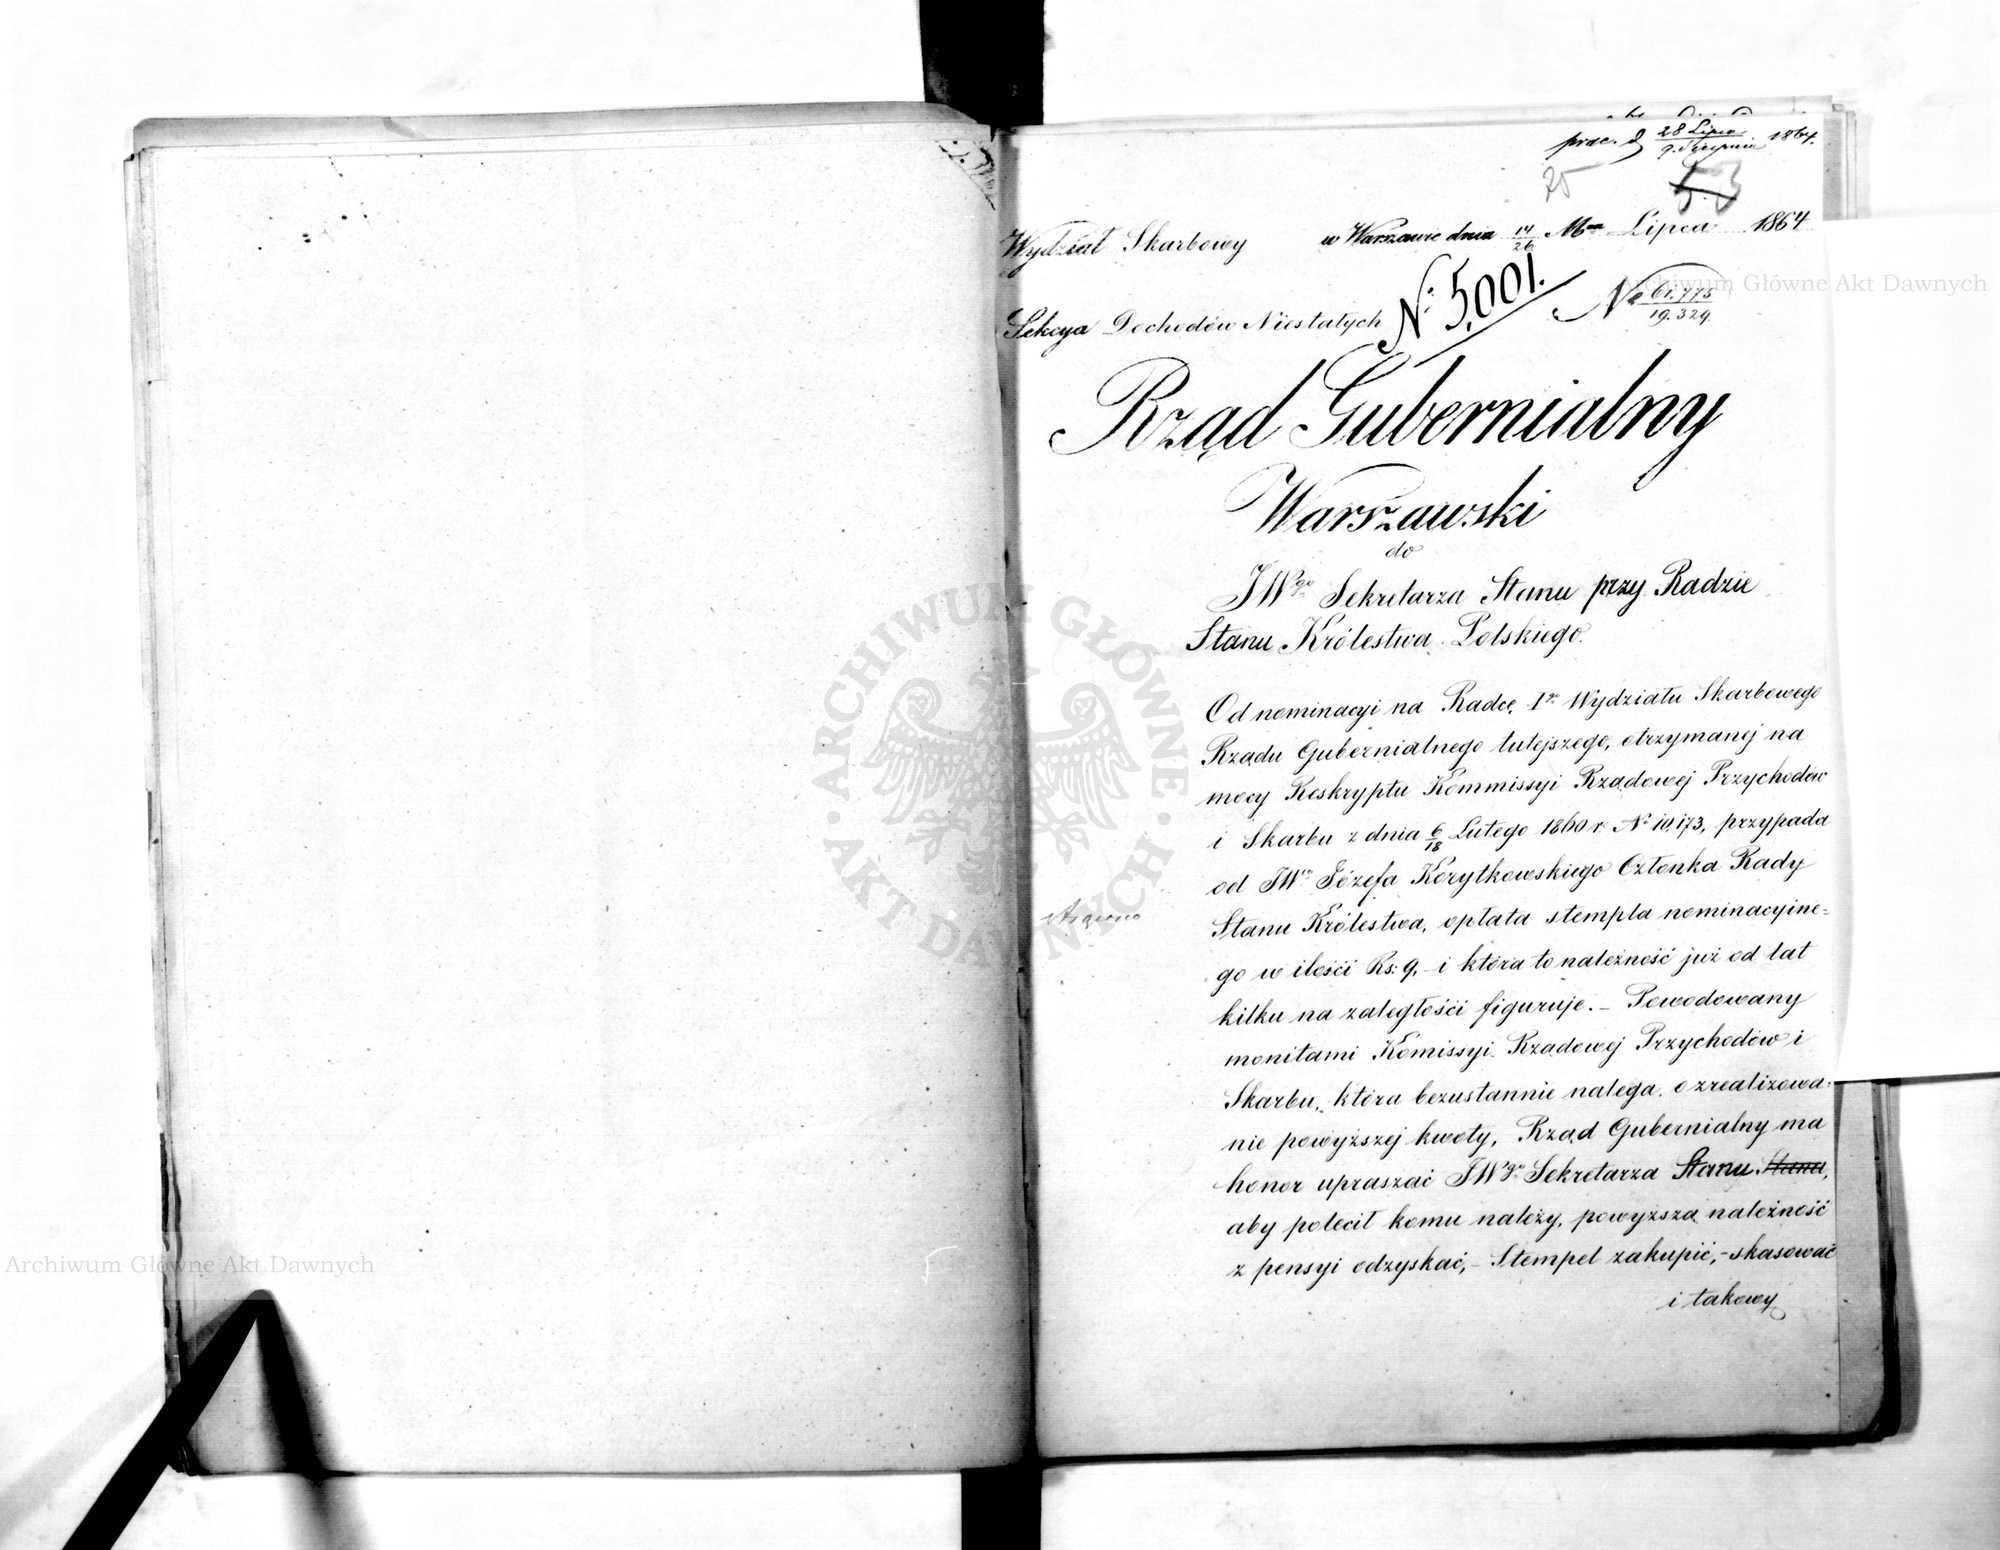 prae. d 28 Lipca / 9. Sierpnia 1864.
25 53
Wydział Skarbowy w Warszawie dnia 14/26 Mca Lipca 1864
Sekcya Dochodów Niestałych N: 5,001. No 61.775/19.329.
Rząd Gubernialny
Warszawski
do
JWgo Sekretarza Stanu przy Radzie
Stanu Królestwa Polskiego.
Od nominacyi na Radcę Wydziału Skarbowego
Rządu Gubernialnego tutejszego, otrzymanej na
mocy Reskryptu Kommissyi Rządowej Przychodów
i Skarbu z dnia 6/18 Lutego 1860 r. No 10,173, przypada
od JWo Józefa Korytkowskiego Członka Rady
Stanu Królestwa, opłata stempla nominacyjne=
go w ilości Rs: 9, - i która to należność już od lat
kilku na zaległości figuruje. - Powodowany
monitami Komissyi Rządowej Przychodów i
Skarbu, która bezustannie nalega o zrealizowa=
nie powyższej kwoty, Rząd Gubernialny ma
honor upraszać JWgo Sekretarza Stanu Stanu,
aby polecił komu należy, powyższą należność
z pensyi odzyskać, - Stempel zakupić, - skasować
i takowy
Archiwum Główne Akt Dawnych
Archiwum Główne Akt Dawnych
ARCHIWUM GŁÓWNE · AKT DAWNYCH ·